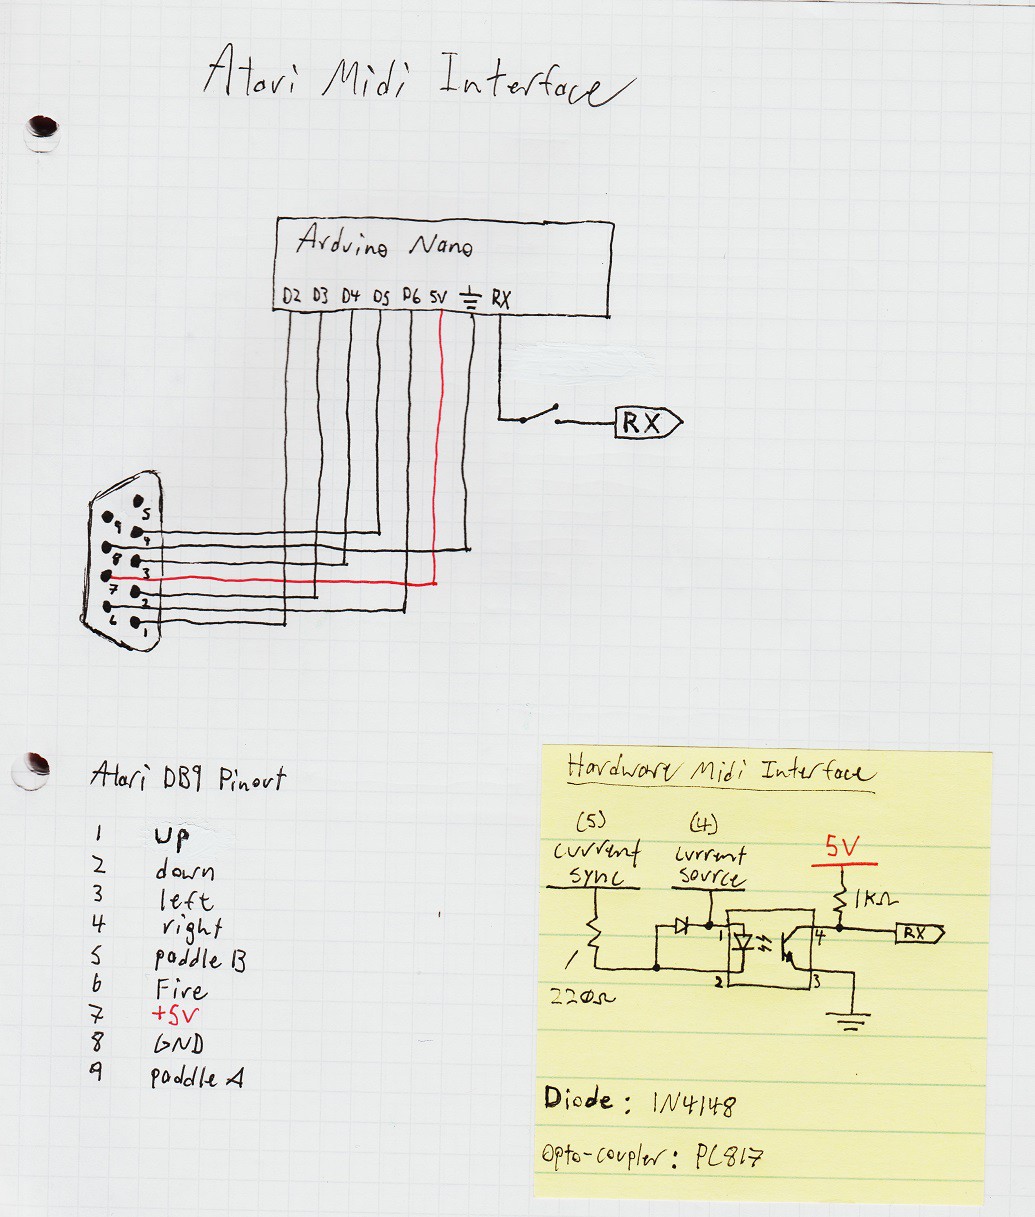 Atari Midi Interface
Arduino Nano
D2 D3 D4 D5 D6 5V RX
RX
5
9
4
8
3
7
2
6
1
Atari DB9 Pinout
1 up
2 down
3 left
4 right
5 paddle B
6 Fire
7 +5V
8 GND
9 paddle A
Hardware Midi Interface
(5) (4)
current current
sync source
5V
1KΩ
1 4
RX
2 3
220Ω
Diode: 1N4148
Opto-coupler: PC817